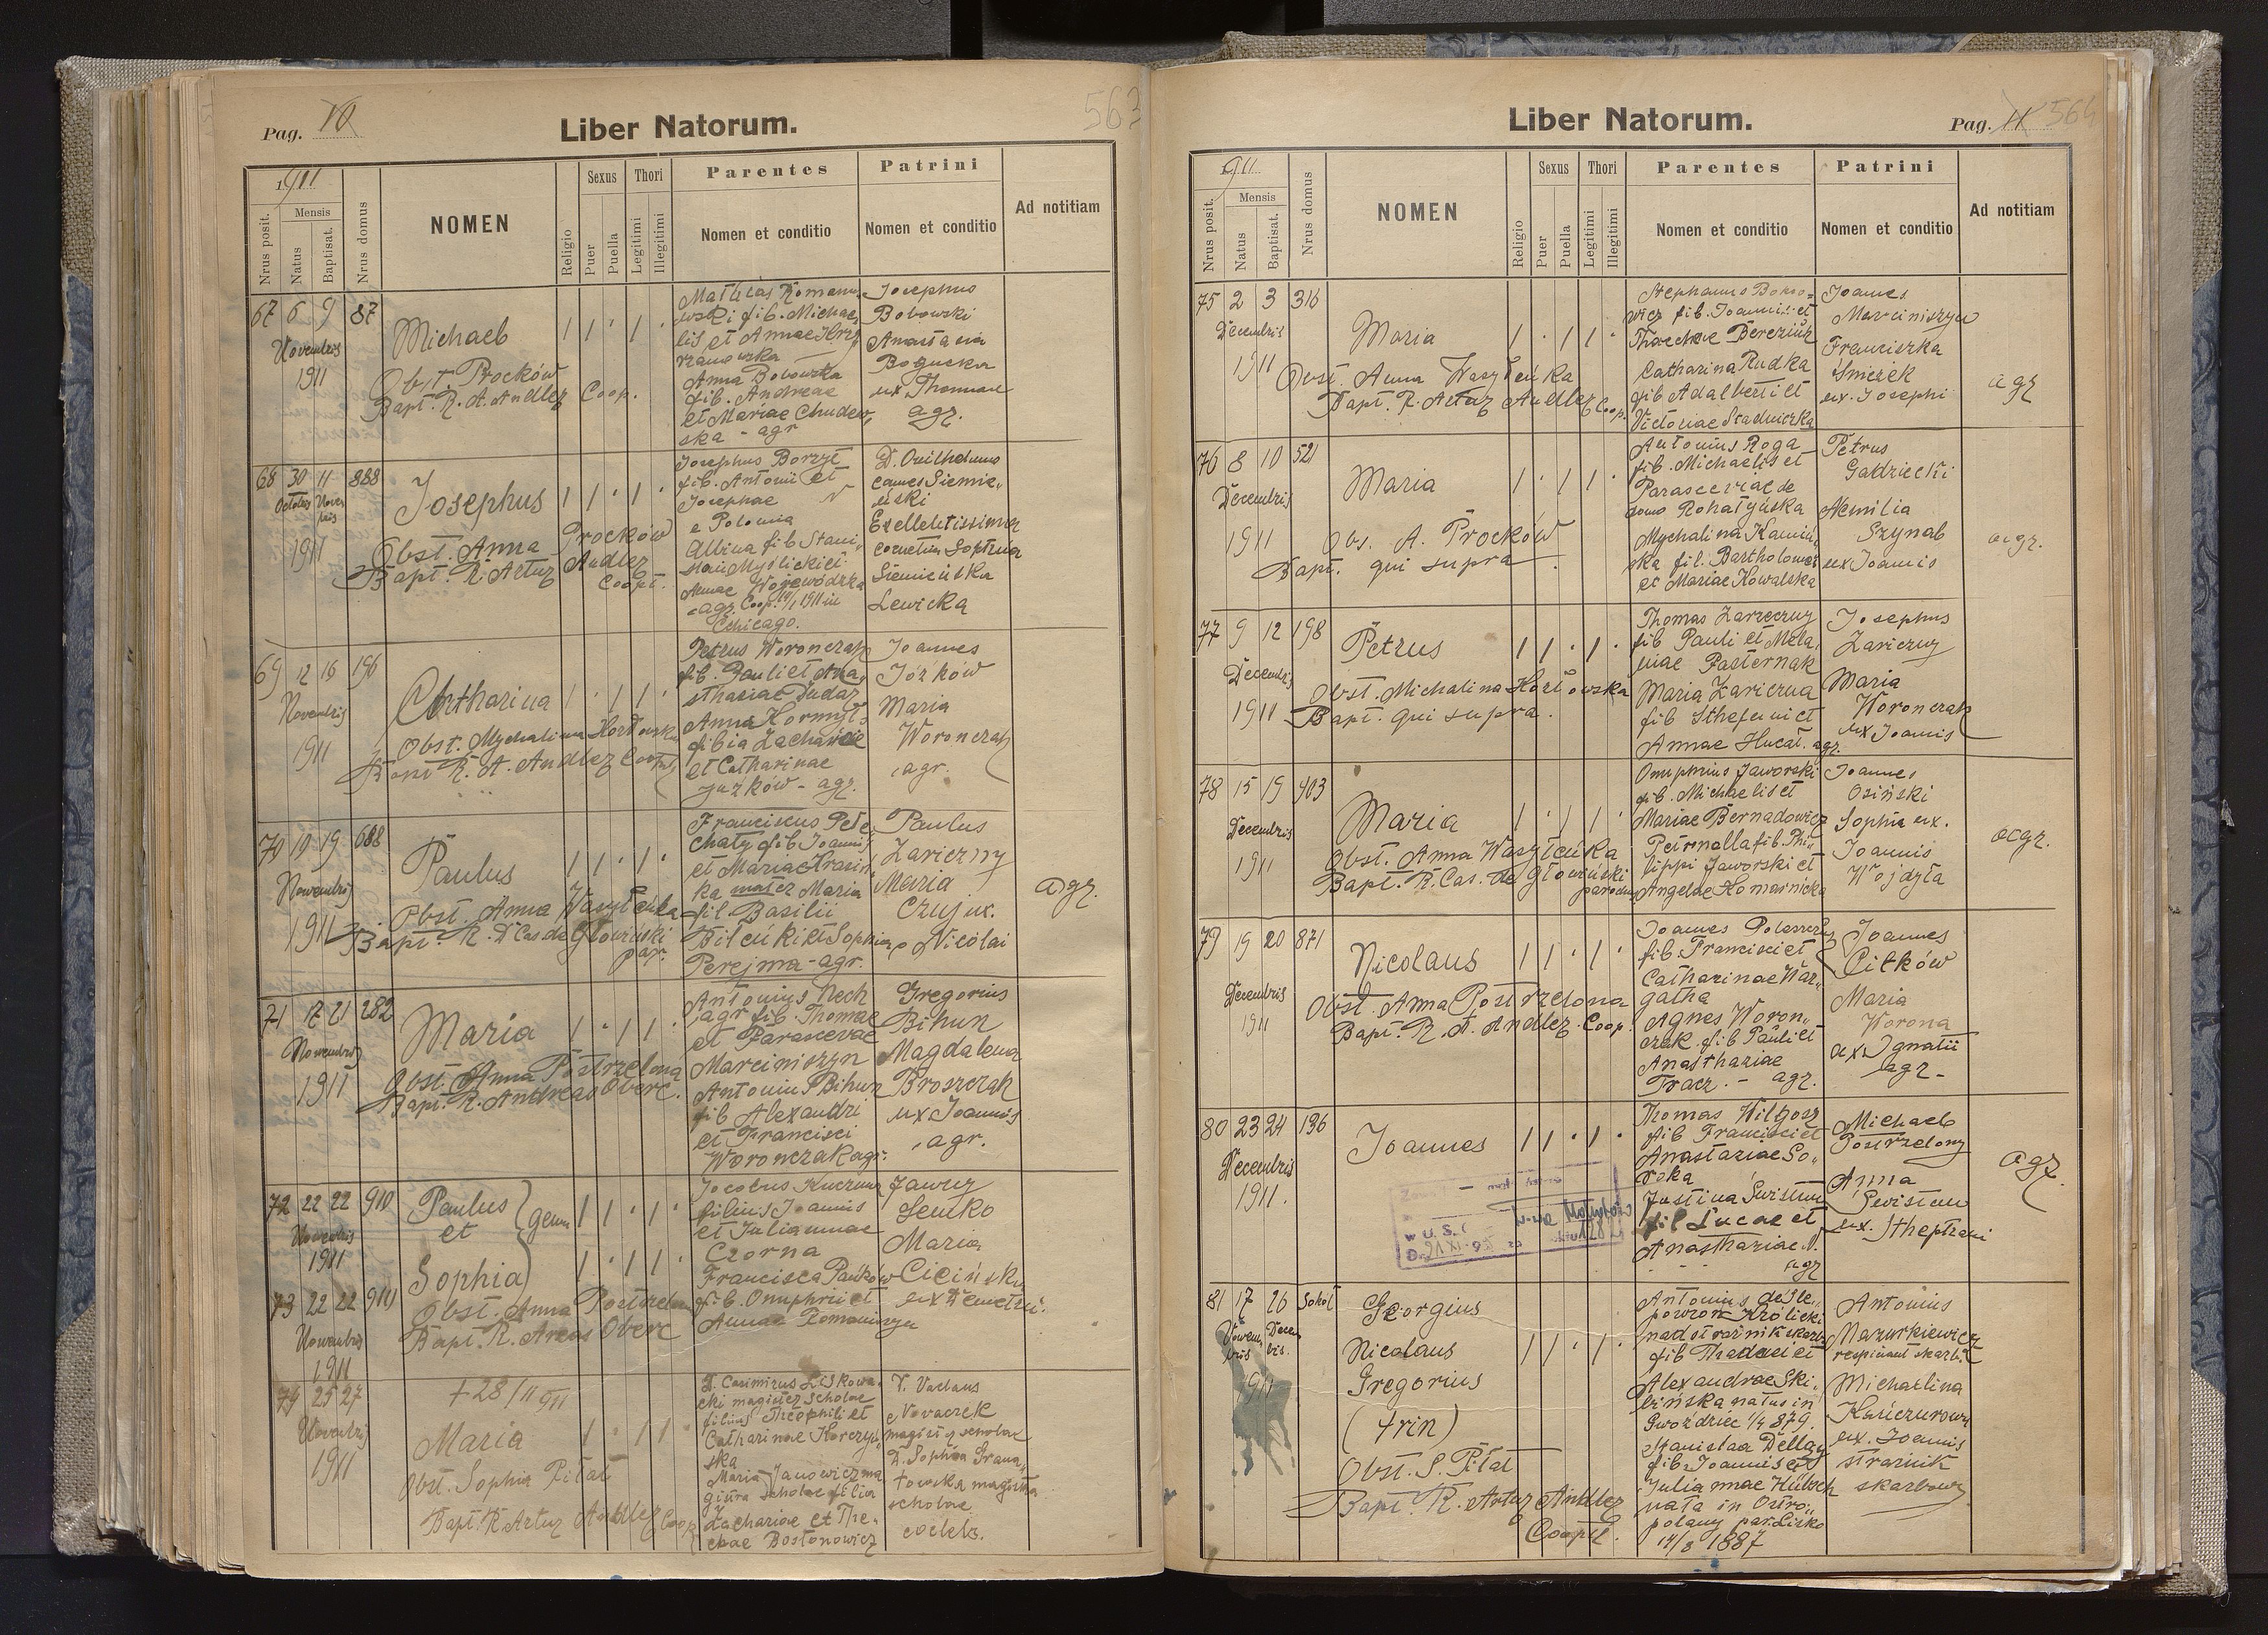 Pag. 10
Liber Natorum.
563
1911
Nrus posit.
Mensis
Natus
Baptisat.
Nrus domus
NOMEN
Religio
Sexus
Puer
Puella
Thori
Legitimi
Illegitimi
Parentes
Nomen et conditio
Patrini
Nomen et conditio
Ad notitiam
67 6 9 87
Novembris
1911
Michael
Obst. Proków
Bapt. R. A. Andlez Coop.
Mathias Romanow
wski fil. Michae
lis et Annae
Anna Bobowska
fil. Andreae
et Mariae Chudew
ska - agr
Josephus
Bobowski
Anastasia
Bogucka
ux Thomae
agr.
68 30 11 888
Octobris Novembris
1911
Josephus
Obst. Anna Procków
Bapt. R. Artur Andlez
Coopt.
Josephus Borzyt
fil. Antonii et
Josephae N
e Polonia
Albina fil Stani
slai Myślicki et
Annae Wojewódzka
agr. Cop. 1911 in
Chicago.
D. Guilhelmus
comes Siemie
ński
Excellentissima
Cornelia Sophia
Siemieńska
Lewicka
69 12 16 196
Novembris
1911
Catharina
Obst. Mychalina Kozłowska
Bapt. R. A. Andlez Coopt.
Petrus Woronczak
fil. Pauli et Ana
sthasiae Dudar
Anna Kormyło
filia Zachariae
et Catharinae
Juzków - agr.
Joannes
Józków
Maria
Woronczak
agr.
70 10 19 688
Novembris
1911
Paulus
Obst. Anna Wasyleńka
Bapt. R. D Cas de Głowiński
par.
Franciscus Pełe
chaty fil Joannis
et Mariae
ka Maria
fil. Basilii
Bileńki et Sophiae
Perejma - agr.
Paulus
Zariczny
Maria
Czuj ux.
Nicolai
agr.
71 17 21 282
Novembris
1911
Maria
Obst. Anna Postrzelona
Bapt. R. Andreas Oberc.
Antonius Nech
agr fil. Thomae
et Parascevae
Marciniszyn
Antonina Bihun
fil Alexandri
et Francisci
Woronczak agr.
Gregorius
Bihun
Magdalena
Broszczak
ux Joannis
agr.
72 22 22 910
Novembris
1911
Paulus
et
Sophia
gem
73 22 22 910
Novembris
1911
Obst. Anna Postrzelona
Bapt. R. Oberc
Jacobus
filius Joannis
et Juliannae
Czorna
Francisca Pańków
fil. Onuphrii et
Annae Romaniszyn
Jawny
Semko
Maria
Cicińska
ux Demetrii.
74 25 27
Novembris
1911
+ 28/11 911
Maria
Obst. Sophia Piłat
Bapt. R. Artur Andlez Coop
D. Casimirus
magister scholae
filius Theophili et
Catharinae Korczyń
ska
Maria Janowicz ma
gistra scholae filia
Zachariae et The
clae Bostonowicz
V. Vaclaus
Novaczek
magister scholae
D. Sophia Grana
towska magistra
scholae
coeleb.
Liber Natorum.
Pag. 11 564
1911
Nrus posit.
Mensis
Natus
Baptisat.
Nrus domus
NOMEN
Religio
Sexus
Puer
Puella
Thori
Legitimi
Illegitimi
Parentes
Nomen et conditio
Patrini
Nomen et conditio
Ad notitiam
75 2 3 316
Decembris
1911
Maria
Obst. Anna Wasyleńka
Bapt. R. Artur Andlez Coop.
Stephanus
wicz fil. Joannis et
Theclae Bereziuk
Catharina Rudka
fil Adalberti et
Victoriae Stadniczka
Joannes
Marciniszyn
Franciszka
Śnieżek
ux. Josephi
agr
76 8 10 521
Decembris
1911
Maria
Obs. A. Procków
Bapt. qui supra
Antonius Roga
fil. Michaelis et
Parascevae de
domo Rohatyńska
Mychalina Kamiń
ska fil. Bartholomei
et Mariae Kowalska
Petrus
Gadziecki
Aemilia
Szynal
ux Joannis
agr.
77 9 12 198
Decembris
1911
Petrus
Obst. Michalina Kozłowska
Bapt. qui supra.
Thomas Zarzeczny
fil Pauli et Mela
niae Pasternak
Maria Zariczna
fil Sthefani et
Annae Hucał. agr.
Josephus
Zariczny
Maria
Woronczak
ux Joannis
78 15 19 403
Decembris
1911
Maria
Obst. Anna Wasyleńka
Bapt. R. Cas. de Głowiński
parochus
Onuphrius Jaworski
fil. Michaelis et
Mariae Bernadowicz
Petrnalla fil. Phi
lippi Jaworski et
Angelae Komarnicka
Joannes
Osiński
Sophia ux.
Joannis
Wojdyła
agr.
79 19 20 871
Decembris
1911
Nicolaus
Obst. Anna Postrzelona
Bapt. R. A. Andlez. Coop.
Joannes
fil. Francisci et
Catharinae War
gatha
Agnes Woron
czak. fil Pauli et
Anasthasiae
Tracz. - agr.
Joannes
Citków
Maria
Worona
ux Ignatii
agr-
80 23 24 136
Decembris
1911.
Joannes
Thomas Wilgosz
fil Francisci et
Anastasiae So
roka
Justina Świstun
fil Lucae et
Anasthasiae N.
agr
Michael
Postrzelony
Anna
Świstun
ux. Stephani
agr.
w U.S.C.
81 17 26 Sokół
Novembris Decembris.
1911
Georgius
Nicolaus
Gregorius
(trin)
Obst. S. Piłat
Bapt. R. Artur Andlez
Coopt.
Antonius de Śle
powron Królicki
nadstrażnik skarb.
fil Thadaei et
Alexandrae Ski
bińska natus in
Gwoździec 1/4 879.
Stanisłaa Dellay
fil. Joannis et
Juliannae Hübsch
nata in Ostro
polany par. Lisko
14/8 1887
Antonius
Mazurkiewicz
respicient skarb.
Michaelina
ux. Joannis
strażnik
skarbowy